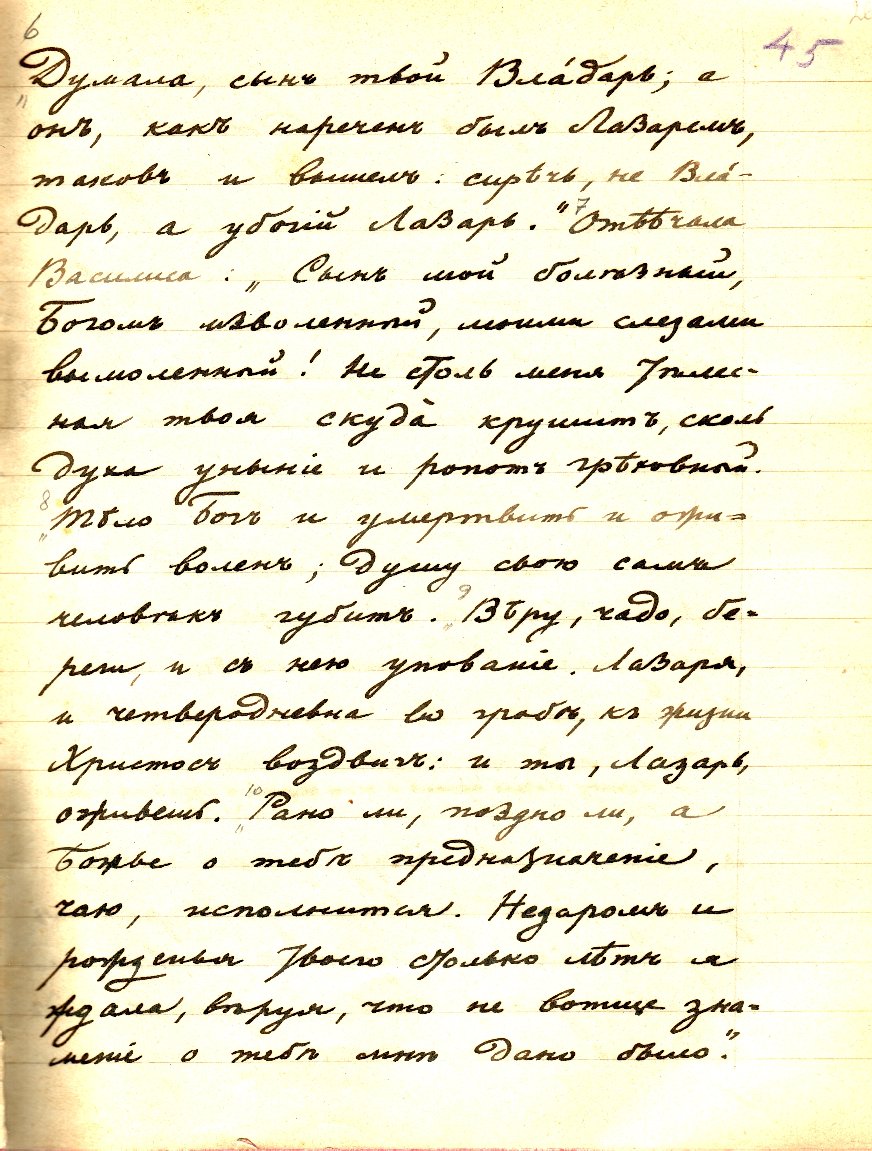 6
45
Думала, сынъ твой Влáдарь; а
„онъ, какъ нареченъ былъ Лазаремъ,
таковъ и вышелъ: сирѣчь, не Влá-
дарь, а убогій Лазарь." 7 Отвѣчала
Василиса: „Сынъ мой болѣзный,
Богомъ изволенный, моими слезами
вымоленный! Не столь меня тѣлес-
ная твоя скудà крушитъ, сколь
духа уныніе и ропотъ грѣховный.
8 „Тѣло Богъ и умертвить и ожи-
вить воленъ; душу свою самъ
человѣкъ губитъ. 9 „Вѣру, чадо, бе-
реги, и съ нею упованіе. Лазаря,
и четверодневна во гробѣ, къ жизни
Христосъ воздвигъ: и ты, Лазарь,
оживешь. 10 „Рано ли, поздно ли, а
Божье о тебѣ предназначеніе,
чаю, исполнится. Недаромъ и
рожденья твоего столько лѣтъ я
ждала, вѣруя, что не вотще зна-
меніе о тебѣ мнѣ дано было."